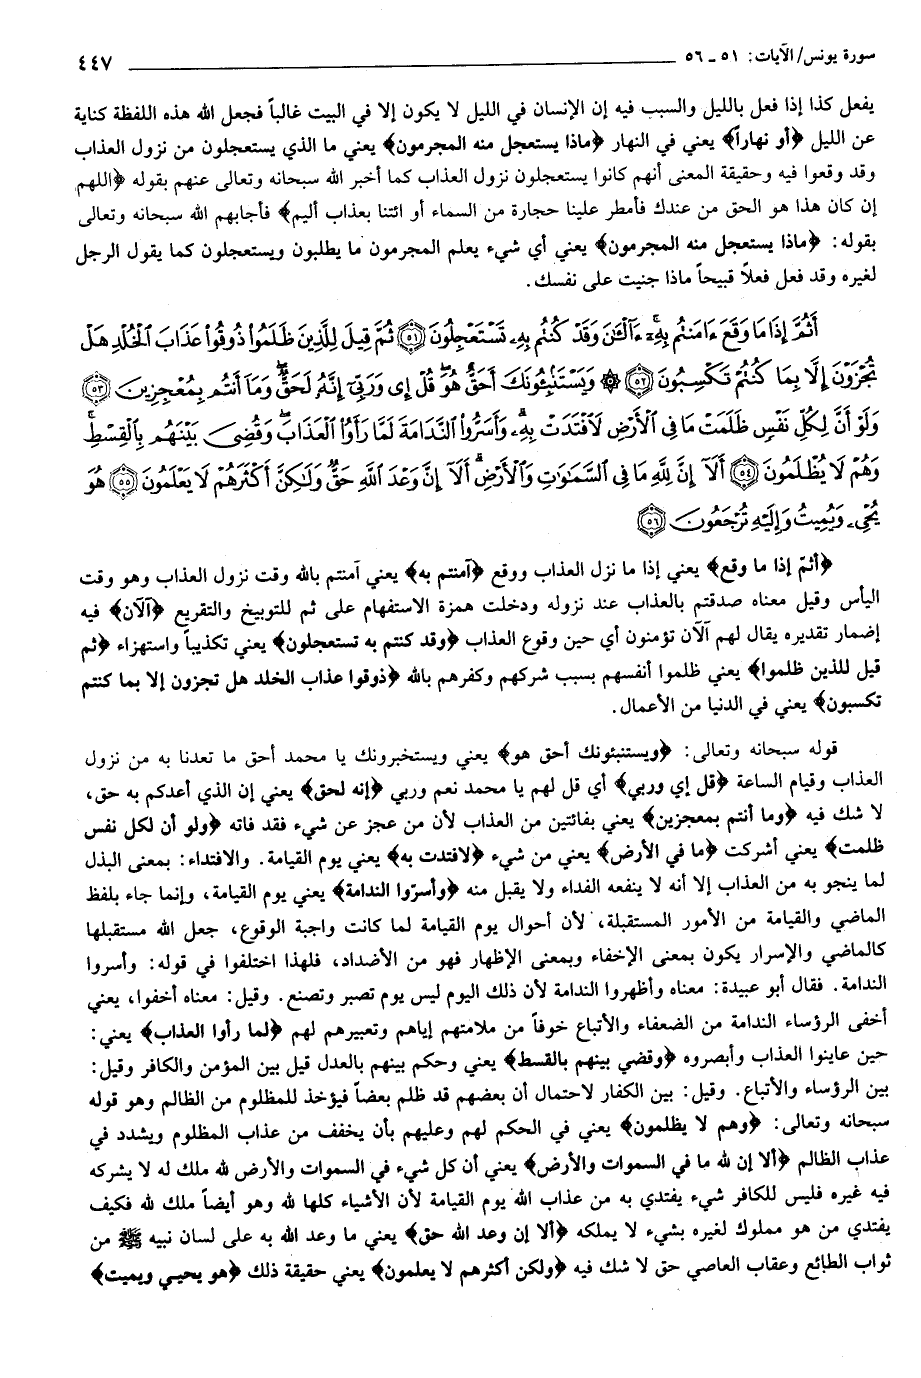 سورة يونس/ الآيات: ٥١ ـ ٥٦ ٤٤٧
يفعل كذا إذا فعل بالليل والسبب فيه إن الإنسان في الليل لا يكون إلا في البيت غالباً فجعل الله هذه اللفظة كناية
عن الليل ﴿أو نهاراً﴾ يعني في النهار ﴿ماذا يستعجل منه المجرمون﴾ يعني ما الذي يستعجلون من نزول العذاب
وقد وقعوا فيه وحقيقة المعنى أنهم كانوا يستعجلون نزول العذاب كما أخبر الله سبحانه وتعالى عنهم بقوله ﴿اللهم
إن كان هذا هو الحق من عندك فأمطر علينا حجارة من السماء أو ائتنا بعذاب أليم﴾ فأجابهم الله سبحانه وتعالى
بقوله: ﴿ماذا يستعجل منه المجرمون﴾ يعني أي شيء يعلم المجرمون ما يطلبون ويستعجلون كما يقول الرجل
لغيره وقد فعل فعلاً قبيحاً ماذا جنيت على نفسك.
أَثُمَّ إِذَا مَا وَقَعَ ءَامَنتُم بِهِۦٓ ءَآلْـَٰٔنَ وَقَدْ كُنتُم بِهِۦ تَسْتَعْجِلُونَ ﴿٥١﴾ ثُمَّ قِيلَ لِلَّذِينَ ظَلَمُوا۟ ذُوقُوا۟ عَذَابَ ٱلْخُلْدِ هَلْ
تُجْزَوْنَ إِلَّا بِمَا كُنتُمْ تَكْسِبُونَ ﴿٥٢﴾ ۞ وَيَسْتَنۢبِـُٔونَكَ أَحَقٌّ هُوَ ۖ قُلْ إِى وَرَبِّىٓ إِنَّهُۥ لَحَقٌّ ۖ وَمَآ أَنتُم بِمُعْجِزِينَ ﴿٥٣﴾
وَلَوْ أَنَّ لِكُلِّ نَفْسٍ ظَلَمَتْ مَا فِى ٱلْأَرْضِ لَٱفْتَدَتْ بِهِۦ ۗ وَأَسَرُّوا۟ ٱلنَّدَامَةَ لَمَّا رَأَوُا۟ ٱلْعَذَابَ ۖ وَقُضِىَ بَيْنَهُم بِٱلْقِسْطِ ۚ
وَهُمْ لَا يُظْلَمُونَ ﴿٥٤﴾ أَلَآ إِنَّ لِلَّهِ مَا فِى ٱلسَّمَٰوَٰتِ وَٱلْأَرْضِ ۗ أَلَآ إِنَّ وَعْدَ ٱللَّهِ حَقٌّ وَلَٰكِنَّ أَكْثَرَهُمْ لَا يَعْلَمُونَ ﴿٥٥﴾ هُوَ
يُحْىِۦ وَيُمِيتُ وَإِلَيْهِ تُرْجَعُونَ ﴿٥٦﴾
﴿أثمّ إذا ما وقع﴾ يعني إذا ما نزل العذاب ووقع ﴿آمنتم به﴾ يعني آمنتم بالله وقت نزول العذاب وهو وقت
اليأس وقيل معناه صدقتم بالعذاب عند نزوله ودخلت همزة الاستفهام على ثم للتوبيخ والتقريع ﴿آلآن﴾ فيه
إضمار تقديره يقال لهم آلآن تؤمنون أي حين وقوع العذاب ﴿وقد كنتم به تستعجلون﴾ يعني تكذيباً واستهزاء ﴿ثم
قيل للذين ظلموا﴾ يعني ظلموا أنفسهم بسبب شركهم وكفرهم بالله ﴿ذوقوا عذاب الخلد هل تجزون إلا بما كنتم
تكسبون﴾ يعني في الدنيا من الأعمال.
قوله سبحانه وتعالى: ﴿ويستنبئونك أحق هو﴾ يعني ويستخبرونك يا محمد أحق ما تعدنا به من نزول
العذاب وقيام الساعة ﴿قل إي وربي﴾ أي قل لهم يا محمد نعم وربي ﴿إنه لحق﴾ يعني إن الذي أعدكم به حق،
لا شك فيه ﴿وما أنتم بمعجزين﴾ يعني بفائتين من العذاب لأن من عجز عن شيء فقد فاته ﴿ولو أن لكل نفس
ظلمت﴾ يعني أشركت ﴿ما في الأرض﴾ يعني من شيء ﴿لافتدت به﴾ يعني يوم القيامة. والافتداء: بمعنى البذل
لما ينجو به من العذاب إلا أنه لا ينفعه الفداء ولا يقبل منه ﴿وأسرّوا الندامة﴾ يعني يوم القيامة، وإنما جاء بلفظ
الماضي والقيامة من الأمور المستقبلة، لأن أحوال يوم القيامة لما كانت واجبة الوقوع، جعل الله مستقبلها
كالماضي والإسرار يكون بمعنى الإخفاء وبمعنى الإظهار فهو من الأضداد، فلهذا اختلفوا في قوله: وأسروا
الندامة. فقال أبو عبيدة: معناه وأظهروا الندامة لأن ذلك اليوم ليس يوم تصبر وتصنع. وقيل: معناه أخفوا، يعني
أخفى الرؤساء الندامة من الضعفاء والأتباع خوفاً من ملامتهم إياهم وتعييرهم لهم ﴿لما رأوا العذاب﴾ يعني:
حين عاينوا العذاب وأبصروه ﴿وقضي بينهم بالقسط﴾ يعني وحكم بينهم بالعدل قيل بين المؤمن والكافر وقيل:
بين الرؤساء والأتباع. وقيل: بين الكفار لاحتمال أن بعضهم قد ظلم بعضاً فيؤخذ للمظلوم من الظالم وهو قوله
سبحانه وتعالى: ﴿وهم لا يظلمون﴾ يعني في الحكم لهم وعليهم بأن يخفف من عذاب المظلوم ويشدد في
عذاب الظالم ﴿ألا إن لله ما في السموات والأرض﴾ يعني أن كل شيء في السموات والأرض لله ملك له لا يشركه
فيه غيره فليس للكافر شيء يفتدي به من عذاب الله يوم القيامة لأن الأشياء كلها لله وهو أيضاً ملك لله فكيف
يفتدي من هو مملوك لغيره بشيء لا يملكه ﴿ألا إن وعد الله حق﴾ يعني ما وعد الله به على لسان نبيه ﷺ من
ثواب الطائع وعقاب العاصي حق لا شك فيه ﴿ولكن أكثرهم لا يعلمون﴾ يعني حقيقة ذلك ﴿هو يحيي ويميت﴾